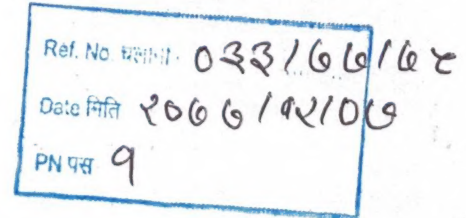 Ref. No. चलानी ०३३/७७/७८
Date मिति २०७७/१२/०७
PN पस १